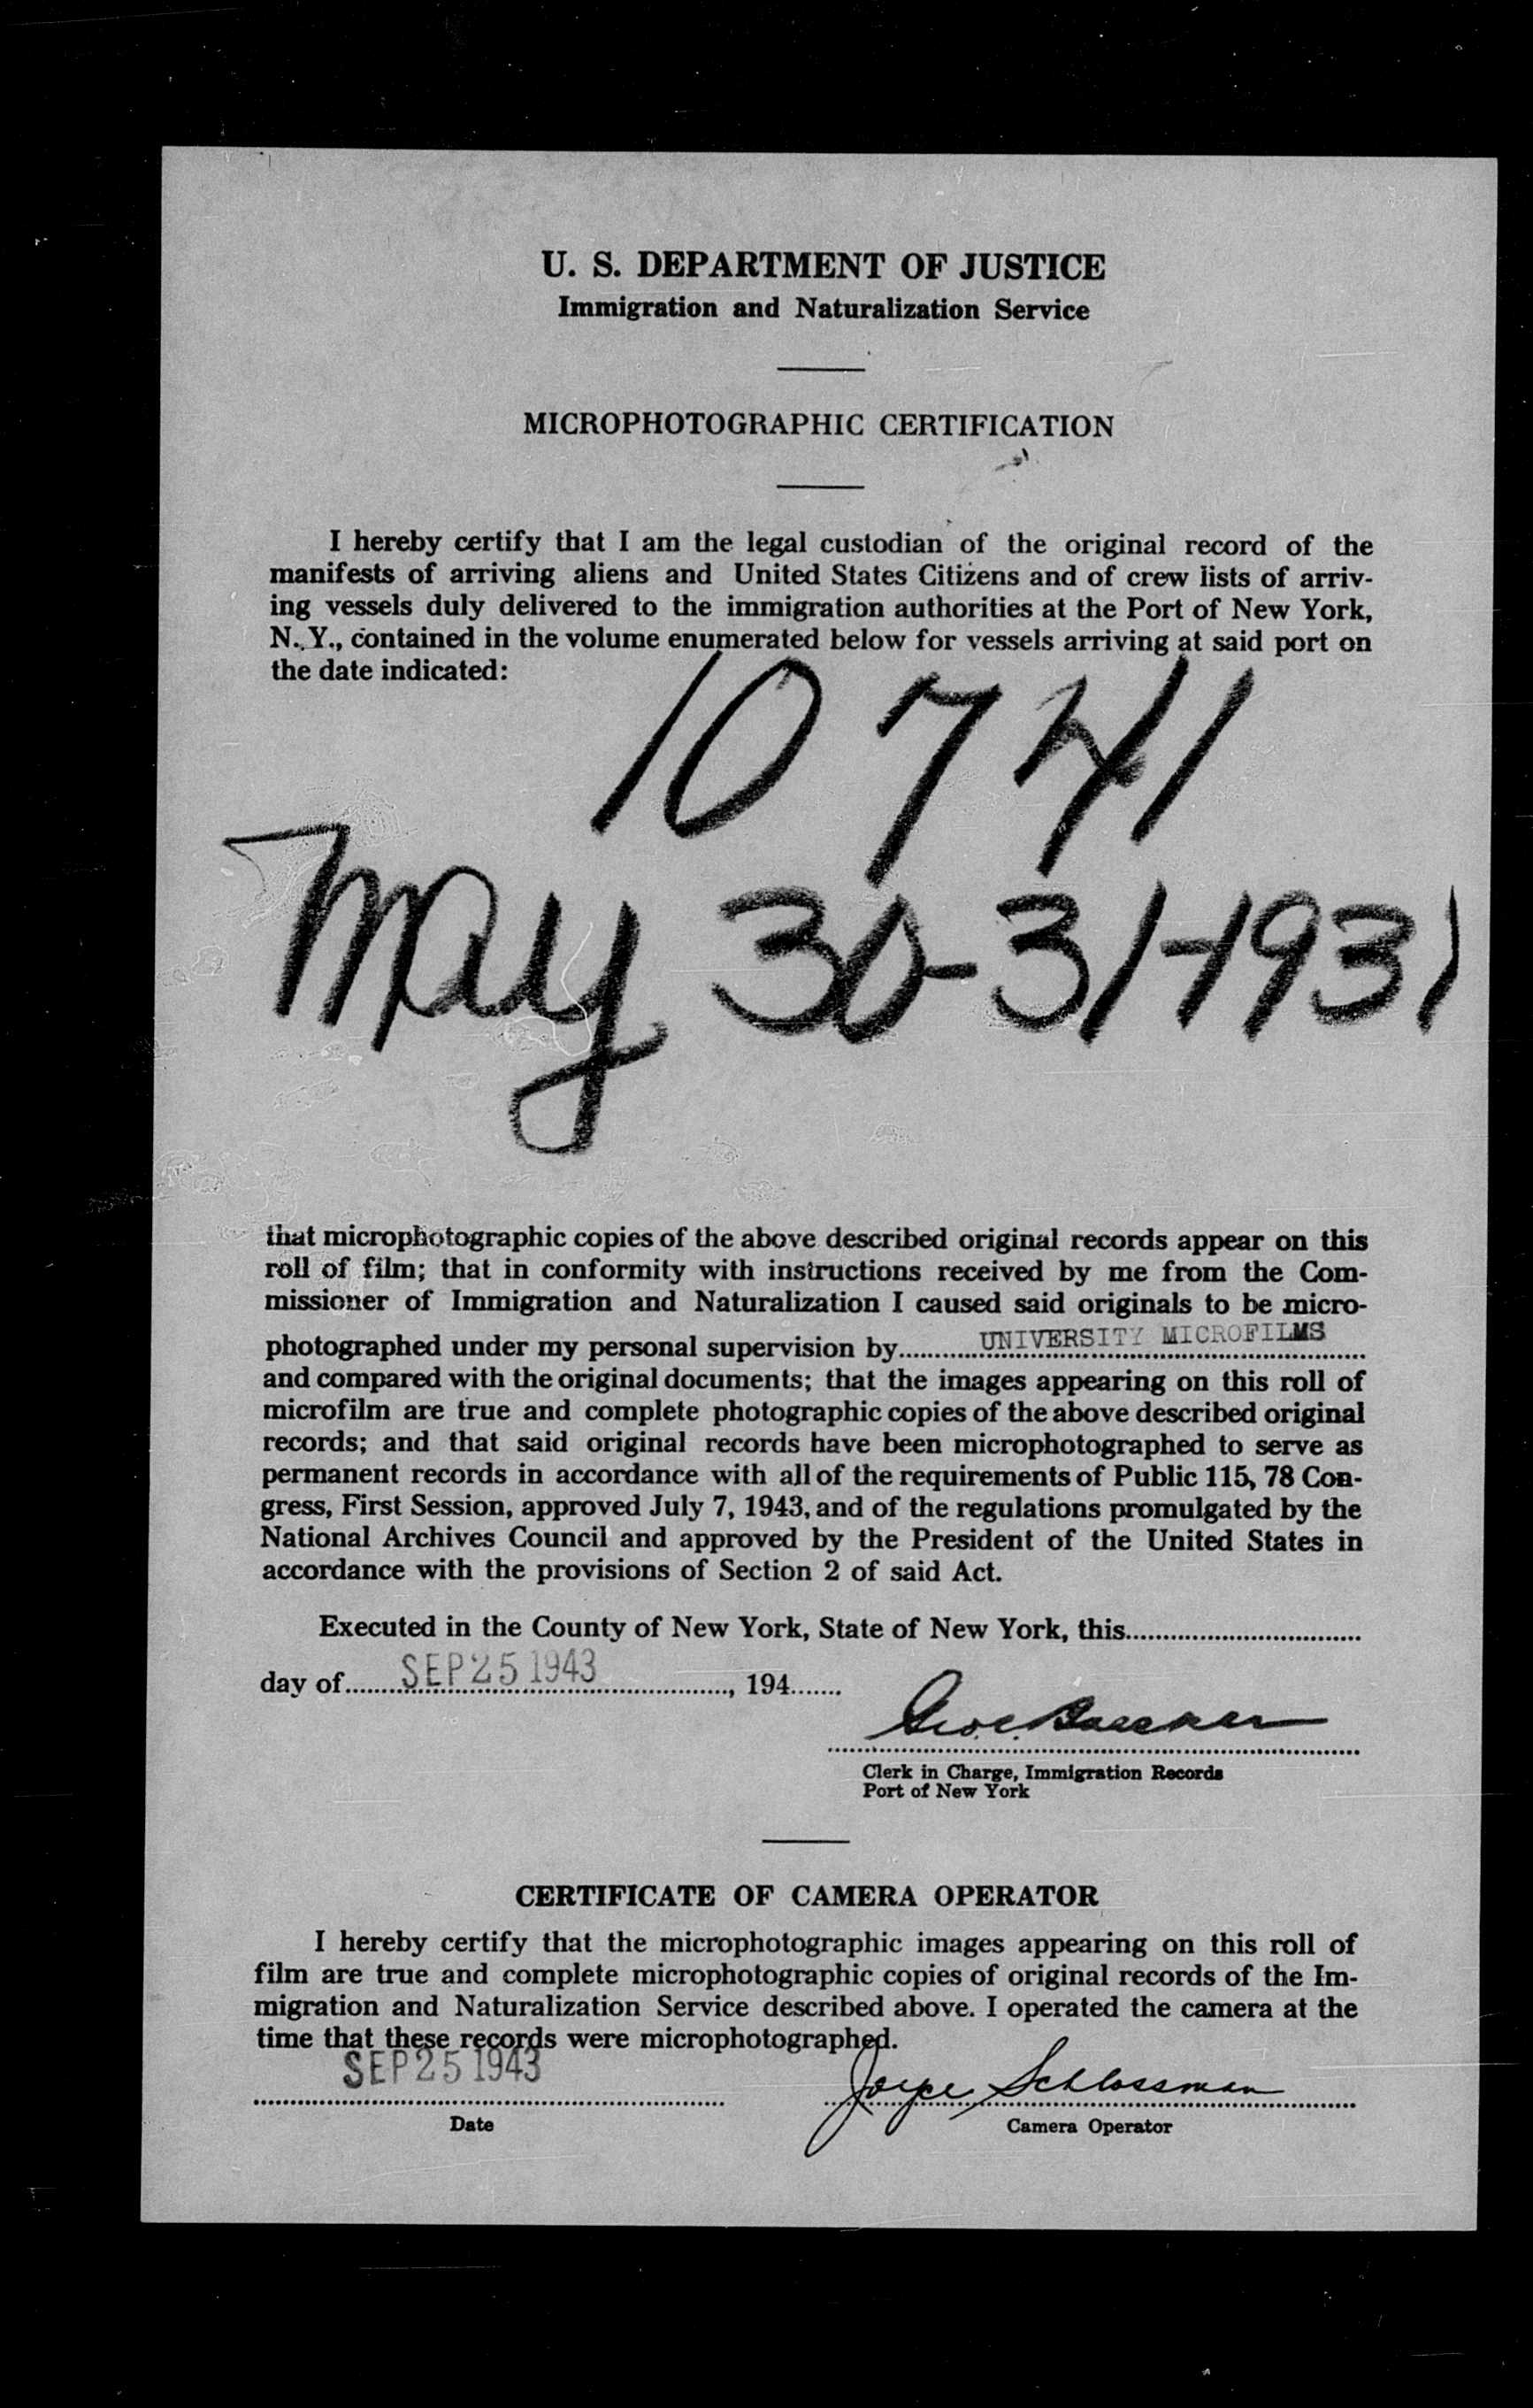 U. S. DEPARTMENT OF JUSTICE
Immigration and Naturalization Service
MICROPHOTOGRAPHIC CERTIFICATION
I hereby certify that I am the legal custodian of the original record of the
manifests of arriving aliens and United States Citizens and of crew lists of arriv-
ing vessels duly delivered to the immigration authorities at the Port of New York,
N. Y., contained in the volume enumerated below for vessels arriving at said port on
the date indicated:
10741
May 30-31-1931
that microphotographic copies of the above described original records appear on this
roll of film; that in conformity with instructions received by me from the Com-
missioner of Immigration and Naturalization I caused said originals to be micro-
photographed under my personal supervision by UNIVERSITY MICROFILMS
and compared with the original documents; that the images appearing on this roll of
microfilm are true and complete photographic copies of the above described original
records; and that said original records have been microphotographed to serve as
permanent records in accordance with all of the requirements of Public 115, 78 Con-
gress, First Session, approved July 7, 1943, and of the regulations promulgated by the
National Archives Council and approved by the President of the United States in
accordance with the provisions of Section 2 of said Act.
Executed in the County of New York, State of New York, this
day of SEP 25 1943, 194
Clerk in Charge, Immigration Records
Port of New York
CERTIFICATE OF CAMERA OPERATOR
I hereby certify that the microphotographic images appearing on this roll of
film are true and complete microphotographic copies of original records of the Im-
migration and Naturalization Service described above. I operated the camera at the
time that these records were microphotographed.
SEP 25 1943 Joyce Schlossman
Date Camera Operator